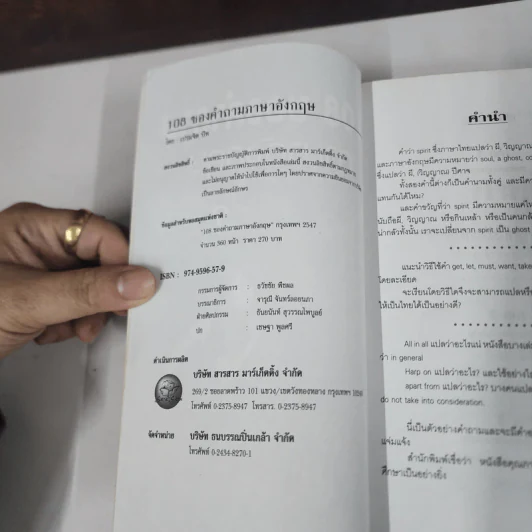 108 ของคำถามภาษาอังกฤษ
โดย
สงวนลิขสิทธิ์ : ตามพระราชบัญญัติการพิมพ์ บริษัท สารสาร มาร์เก็ตติ้ง จำกัด
ข้อเขียน และภาพประกอบในหนังสือเล่มนี้ สงวนลิขสิทธิ์ตามกฎหมาย
และไม่อนุญาตให้นำไปใช้เพื่อการใดๆ โดยปราศจากความยินยอม
เป็นลายลักษณ์อักษร
ข้อมูลสำหรับหอสมุดแห่งชาติ :
"108 ของคำถามภาษาอังกฤษ" กรุงเทพฯ 2547
จำนวน 360 หน้า ราคา 270 บาท
ISBN : 974-9596-57-9
กรรมการผู้จัดการ : ธวัชชัย พืชผล
บรรณาธิการ : จารุณี จันทร์ลอยนภา
ฝ่ายศิลปกรรม : ธันยนันท์ สุวรรณไพบูลย์
ปก : เชษฐา พูลศรี
ดำเนินการผลิต
บริษัท สารสาร มาร์เก็ตติ้ง จำกัด
269/2 ซอยลาดพร้าว 101 แขวง/เขตวังทองหลาง กรุงเทพฯ
โทรศัพท์ 0-2375-8947 โทรสาร. 0-2375-8947
จัดจำหน่าย บริษัท ธนบรรณปิ่นเกล้า จำกัด
โทรศัพท์ 0-2434-8270-1
คำนำ
คำว่า spirit ซึ่งภาษาไทยแปลว่า ผี, วิญญาณ
และภาษาอังกฤษมีความหมายว่า soul, a ghost,
ซึ่งแปลว่า ผี, ภัญญาณ ปีศาจ
ทั้งสองคำนี้ต่างก็เป็นคำนามทั้งคู่ และมีความ
แทนกันได้ไหม?
และคำขวัญที่ว่า spirit มีความหมายแค่ไหน
นับถือผี, วิญญาณ หรือกินเหล้า หรือเป็นคน
น่ากลัวทั้งนั้น เราจะเปลี่ยนจาก spirit เป็น ghost
แนะนำวิธีใช้คำ get, let, must, want, take
โดยละเอียด
จะเรียนโดยวิธีใดจึงจะสามารถแปล
ให้เป็นไทยได้เป็นอย่างดี?
All in all แปลว่าอะไรแน่ หนังสือบางเล่ม
ว่า in general
Harp on แปลว่าอะไร? และใช้อย่างไร
apart from แปลว่าอะไร? บางคนแปล
do not take into consideration.
นี่เป็นตัวอย่างคำถามและจะมีคำ
แจ่มแจ้ง
สำนักพิมพ์เชื่อว่า หนังสือคุณภาพ
ศึกษาเป็นอย่างยิ่ง